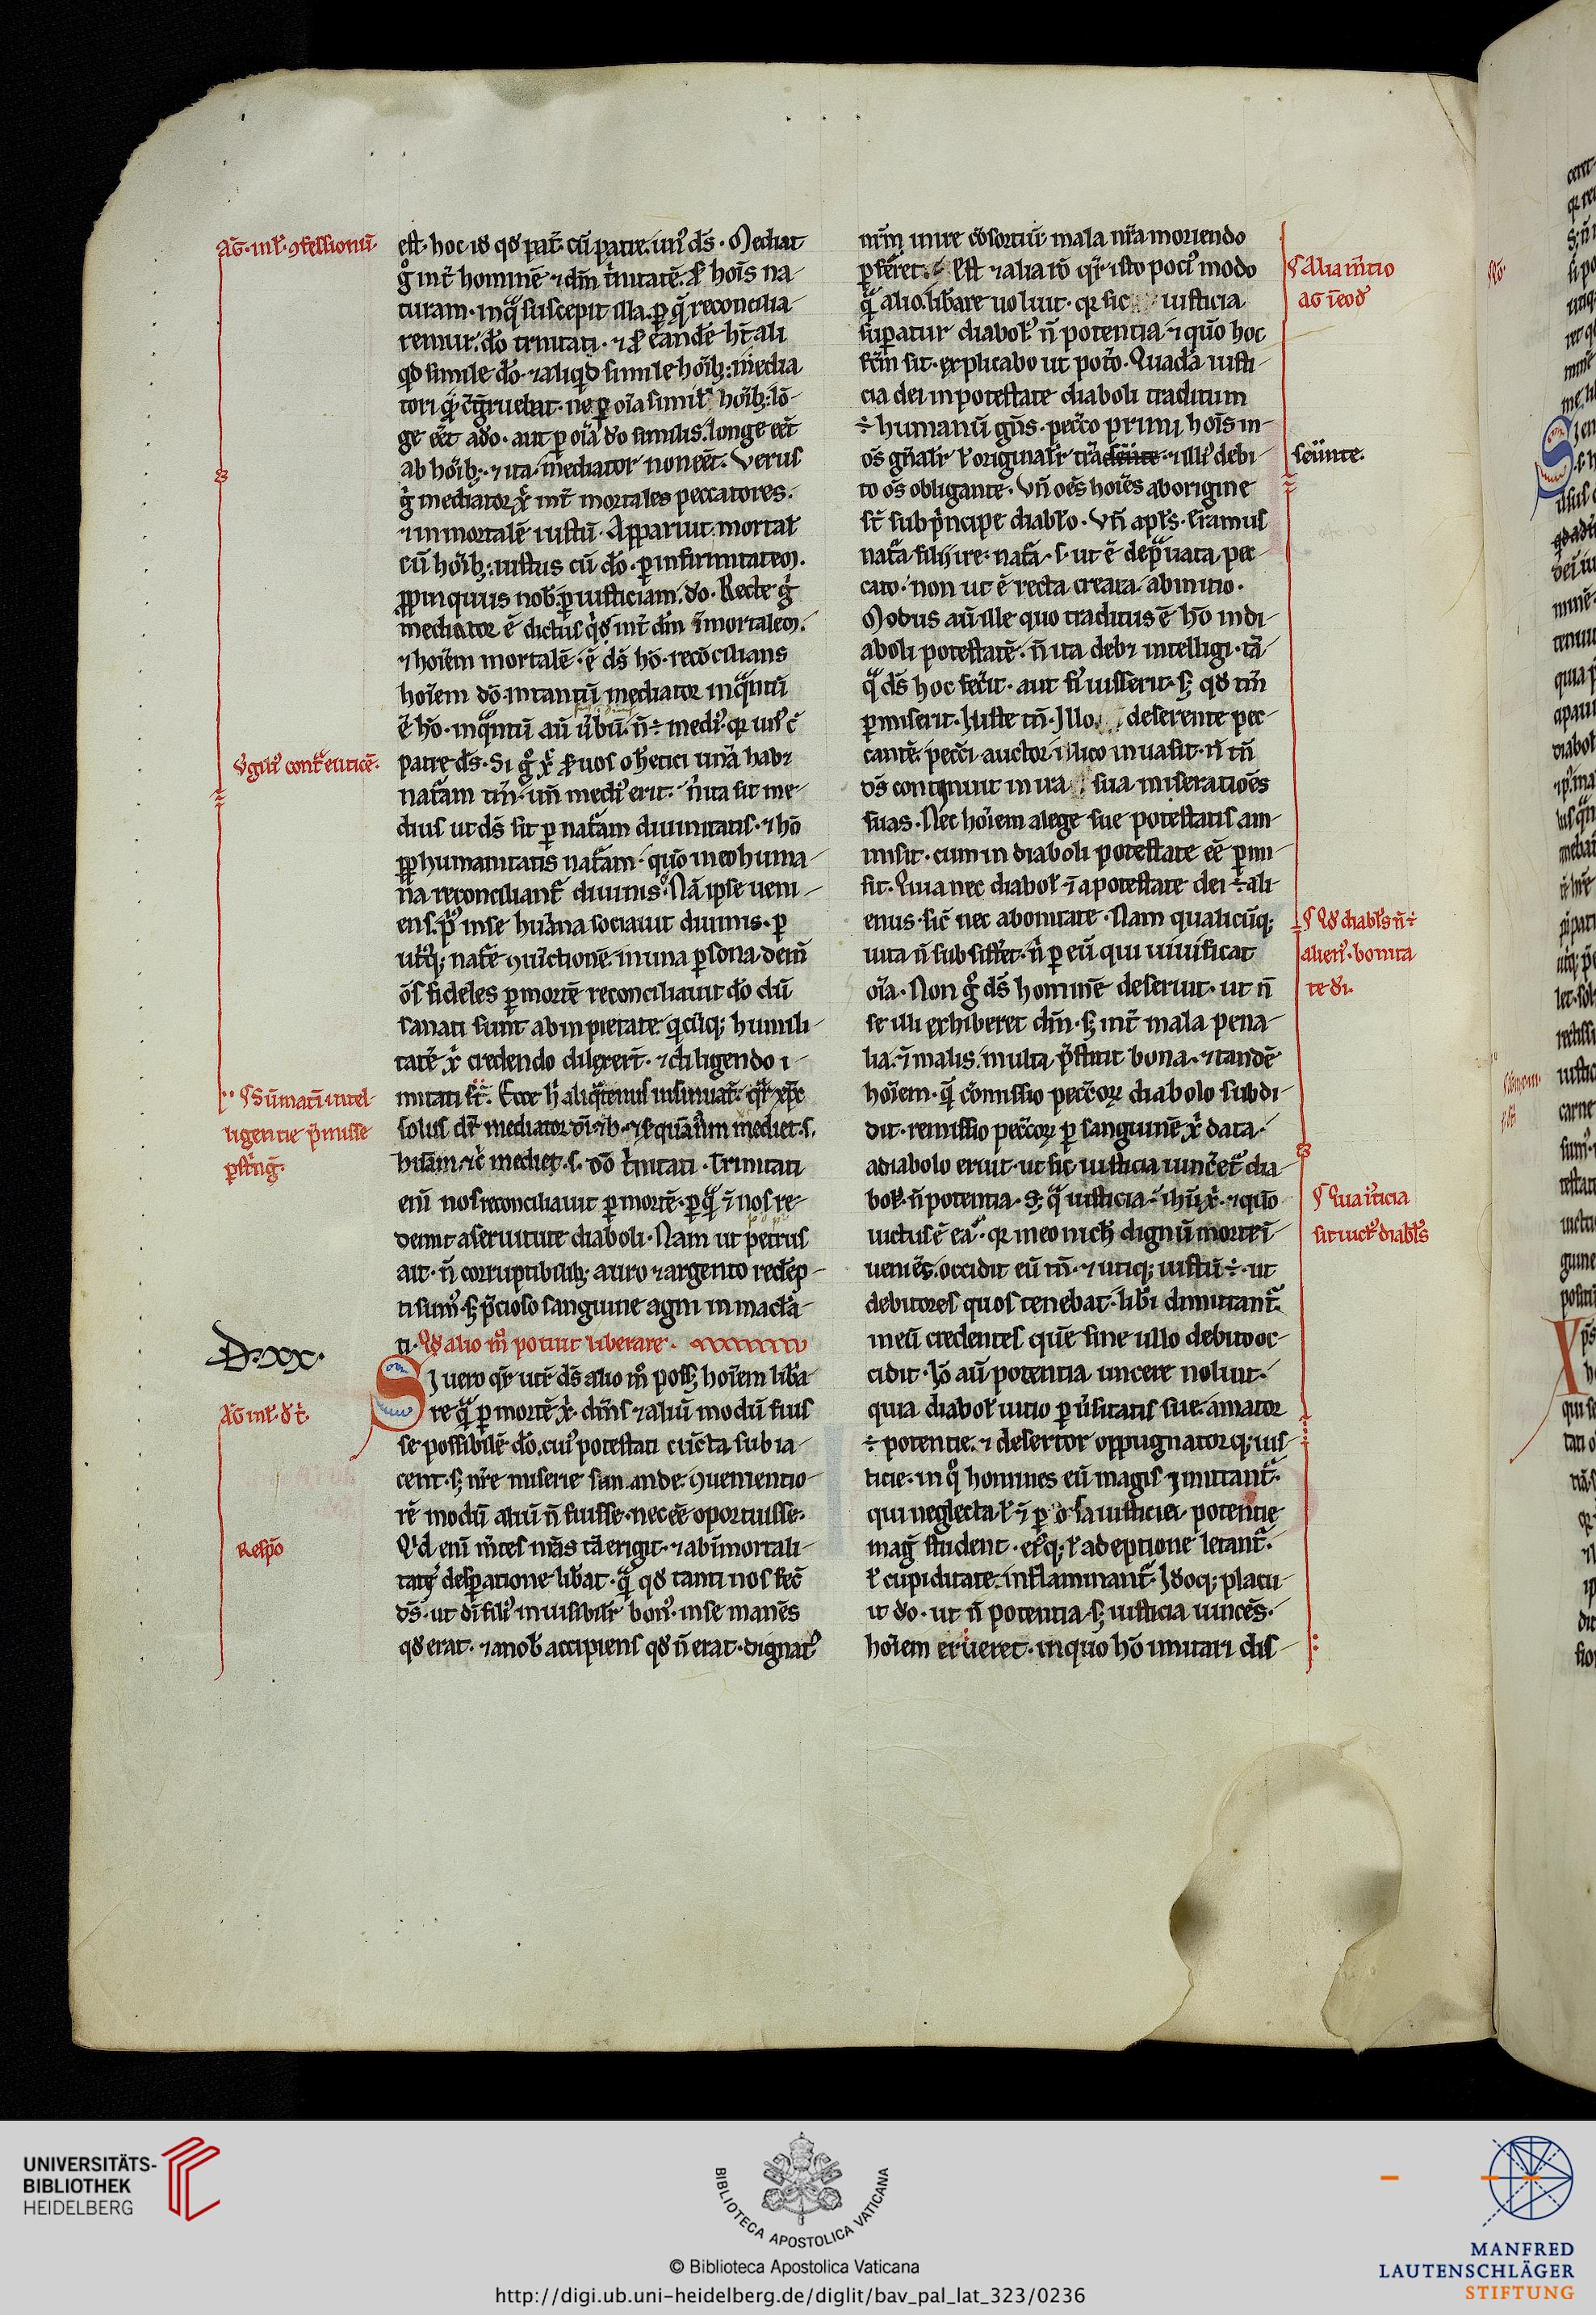 Aḡ. in li. ꝯfessionū.
est. hoc id qd̄ pat̄ cū patre. un᷒ ds̄. Mediat
g̊ int̄ hominē ⁊ dm̄ t̄nitatē. ẜ hoīs na-
turam. in qͣ suscepit illa. ꝑ q̄ reconcilia-
remur. dō trinitati. ⁊ ẜ eandē ht̄ ali
qd simile dō. ⁊ aliqd simile hoīb; media
tori q̄ ꝯgruebat. ne ꝑ oīa simil᷒ hoīb; lō-
ge eēt a dō. aut ꝑ oīa dō similis. longe eēt
ab hoīb;. ⁊ ita mediator non eēt. Verus
g̊ mediator xͥ int̄ mortales peccatores.
⁊ inmortalē iustū. Apparuit. mortal
cū hoīb; iustus cū dō. ꝑ infirmitatem.
ꝓpinquus nob. ꝑ iusticiam. dō. Recte g̊
mediator ē dictus qd̄ int̄ dm̄ īmortalem.
⁊ hoīem mortalē. ē ds̄ hō. recōcilians
hoīem dō. intantū mediator inqͣntū
ē hō. inqͣntū aū ūbū. n̄ ÷ medi᷒. qꝛ un᷒ ē
Vgiłi᷒ cont̄ euticē.
patre ds̄. Si g̊ xͥ ẜ uos o heretici unā habꝫ
nat̄am tm̄. un̄ medi᷒ erit. n̄ ita sit me-
dius ut ds̄ sit ꝑ nat̄am diuinitatis. ⁊ hō
ꝓpt humanitatis nat̄am. quō in eo huma-
na reconciliant̄ diuinis. Nā ipse ueni-
ens. p̄us in se humana sociauit diuinis. ꝑ
utͥq; nat̄e ꝯiūctionē. in una ꝑsona. dein̄
ōs fideles ꝑ mortē reconciliauit dō. dū
sanati sunt ab inpietate. qcūq; humili-
tatē xͥ credendo dilexert̄. ⁊ diligendo i-
¶ Sūmatī intel
ligentie p̄misse
pstͥnḡ.
mitati st̄. Ecce hͥ aliqͣtenus insinuat̄. qͣr xp̄c
solus dr̄ mediator dī ⁊ hō. ⁊ ẜ quā nat̄m mediet. s.
humam. ⁊ c̄ mediet. s. dō t̄nitati. Trinitati
enī nos reconciliauit ꝑ mortē. ꝑ qͣ ⁊ nos re-
demit a seruitute diaboli. Nam ut petrus
ait. n̄ corruptibilib; auro ⁊ argento redēp-
ti sum᷒. s; p̄cioso sanguine agni inmacla-
ti. Qd̄ alio m̊ potuit liberare.
D. xx.
Si uero qͣr utͬ ds̄ alio m̊ poss; hoīem libā-
Aḡ in li. d̄ t̄.
re qͣ ꝑ mortē xͥ. dm̄s ⁊ aliū modū fuis
se possibilē dō. cui᷒ potestati cūcta subia-
cent. s; nr̄e miserie sanande ꝯuenientio-
rē modū aliū n̄ fuisse. nec eē oportuisse.
Respō
Qd enī m̄tes nr̄as tā erigit. ⁊ ab īmortali-
tatꝭ desꝑatione libat. qͣ qd̄ tanti nos fec̄
ds̄. ut dī fili᷒ inuisibilr̄ bon᷒. in se manēs
qd̄ erat. ⁊ a nob accipiens qd̄ n̄ erat. dignat᷒
nr̄m inire cōsortiū. mala nr̄a moriendo
ꝑferret. Est ⁊ alia rō qͣr isto poci᷒ modo
¶ Alia rōtio
Aḡ ī eod
qͣ alio. libare uoluit. qꝛ sic iusticia
suꝑatur diabol᷒. n̄ potencia. ⁊ quō hoc
fc̄m sit. explicabo ut potō. Quadā iusti-
cia dei in potestate diaboli traditum
÷ humanū gn̄s. pecc̄o primi hoīs in
ōs gn̄alīr ł originalīr trādseūnte. ⁊ illi᷒ debi-
seūnte.
to ōs obligante. Vn̄ oēs hoīes ab origine
st̄ sub p̄ncipe diablo. Vn̄ apls. Eramus
nat̄a filii ire. nat̄a. s. ut ē dep̄uata pec-
cato. non ut ē recta creata. ab initio.
Modus aū ille quo traditus ē hō in di-
aboli potestatē. n̄ ita debꝫ intelligi. tā
qͣ ds̄ hoc fecͥit. aut fiͥ iusserit. s; qd̄ tm̄
ꝑmiserit. Iuste tn̄. Illo deserente pec-
cantē. pecc̄i auctor illico inuasit. n̄ tn̄
ds̄ continuit in ira sua miseratiōes
suas. Nec hoīem a lege sue potestatis am-
misit. cum in diaboli potestate eē ꝑmi
sit. Quia nec diabol᷒ ⁊ a potestate dei ÷ ali
enus. sic̄ nec a bonitate. Nam qualicūq;
¶ Qd̄ diabls n̄ ÷
alien᷒. bonita
te dī.
uita n̄ subsistēt. n̄ ꝑ eū qui uiuificat
oīa. Non g̊ ds̄ hominē deseruit. ut n̄
se illi exhiberet dm̄. s; int̄ mala pena-
lia. ⁊ malis. multa p̄stitit bona. ⁊ tandē
hoīem. qͣ cōmissio pecc̄oꝝ diabolo subdi-
dit. remissio pecc̄oꝝ ꝑ sanguinē xͥ data.
a diabolo eruit. ut sic iusticia uincēt᷒ dia
bol᷒. n̄ potencia. S; qͣ iusticia. n̄ ihū xͥ. ⁊ quō
¶ Qua iͥticia
sit uict᷒ diabls
uictus ē ea. qꝛ in eo nich dignū morte ī
ueniēs. occidit eū tn̄. ⁊ utiq; iustū ÷. ut
debitores quos tenebat. libi dimittant̄.
in eū credentes quē sine ullo debito oc-
cidit. Iō aū potentia uincere noluit.
quia diabol᷒ uitio ꝑuͥsitatis sue. amator
÷ potentie. ⁊ desertor oppugnatorq; ius-
ticie. in q̊ homines eū magis imittant̄.
qui neglecta ł ⁊ ꝑosa iusticia. potentie
mag̊ student. ei᷒q; ł adeptione letant̄.
ł cupiditate. inflammant̄. Idoq; placu-
it dō. ut n̄ potencia. s; iusticia uincēs.
hoīem erueret. in quo hō imitari dis-
UNIVERSITÄTS-
BIBLIOTHEK
HEIDELBERG
BIBLIOTECA APOSTOLICA VATICANA
© Biblioteca Apostolica Vaticana
http://digi.ub.uni-heidelberg.de/diglit/bav_pal_lat_323/0236
MANFRED
LAUTENSCHLÄGER
STIFTUNG